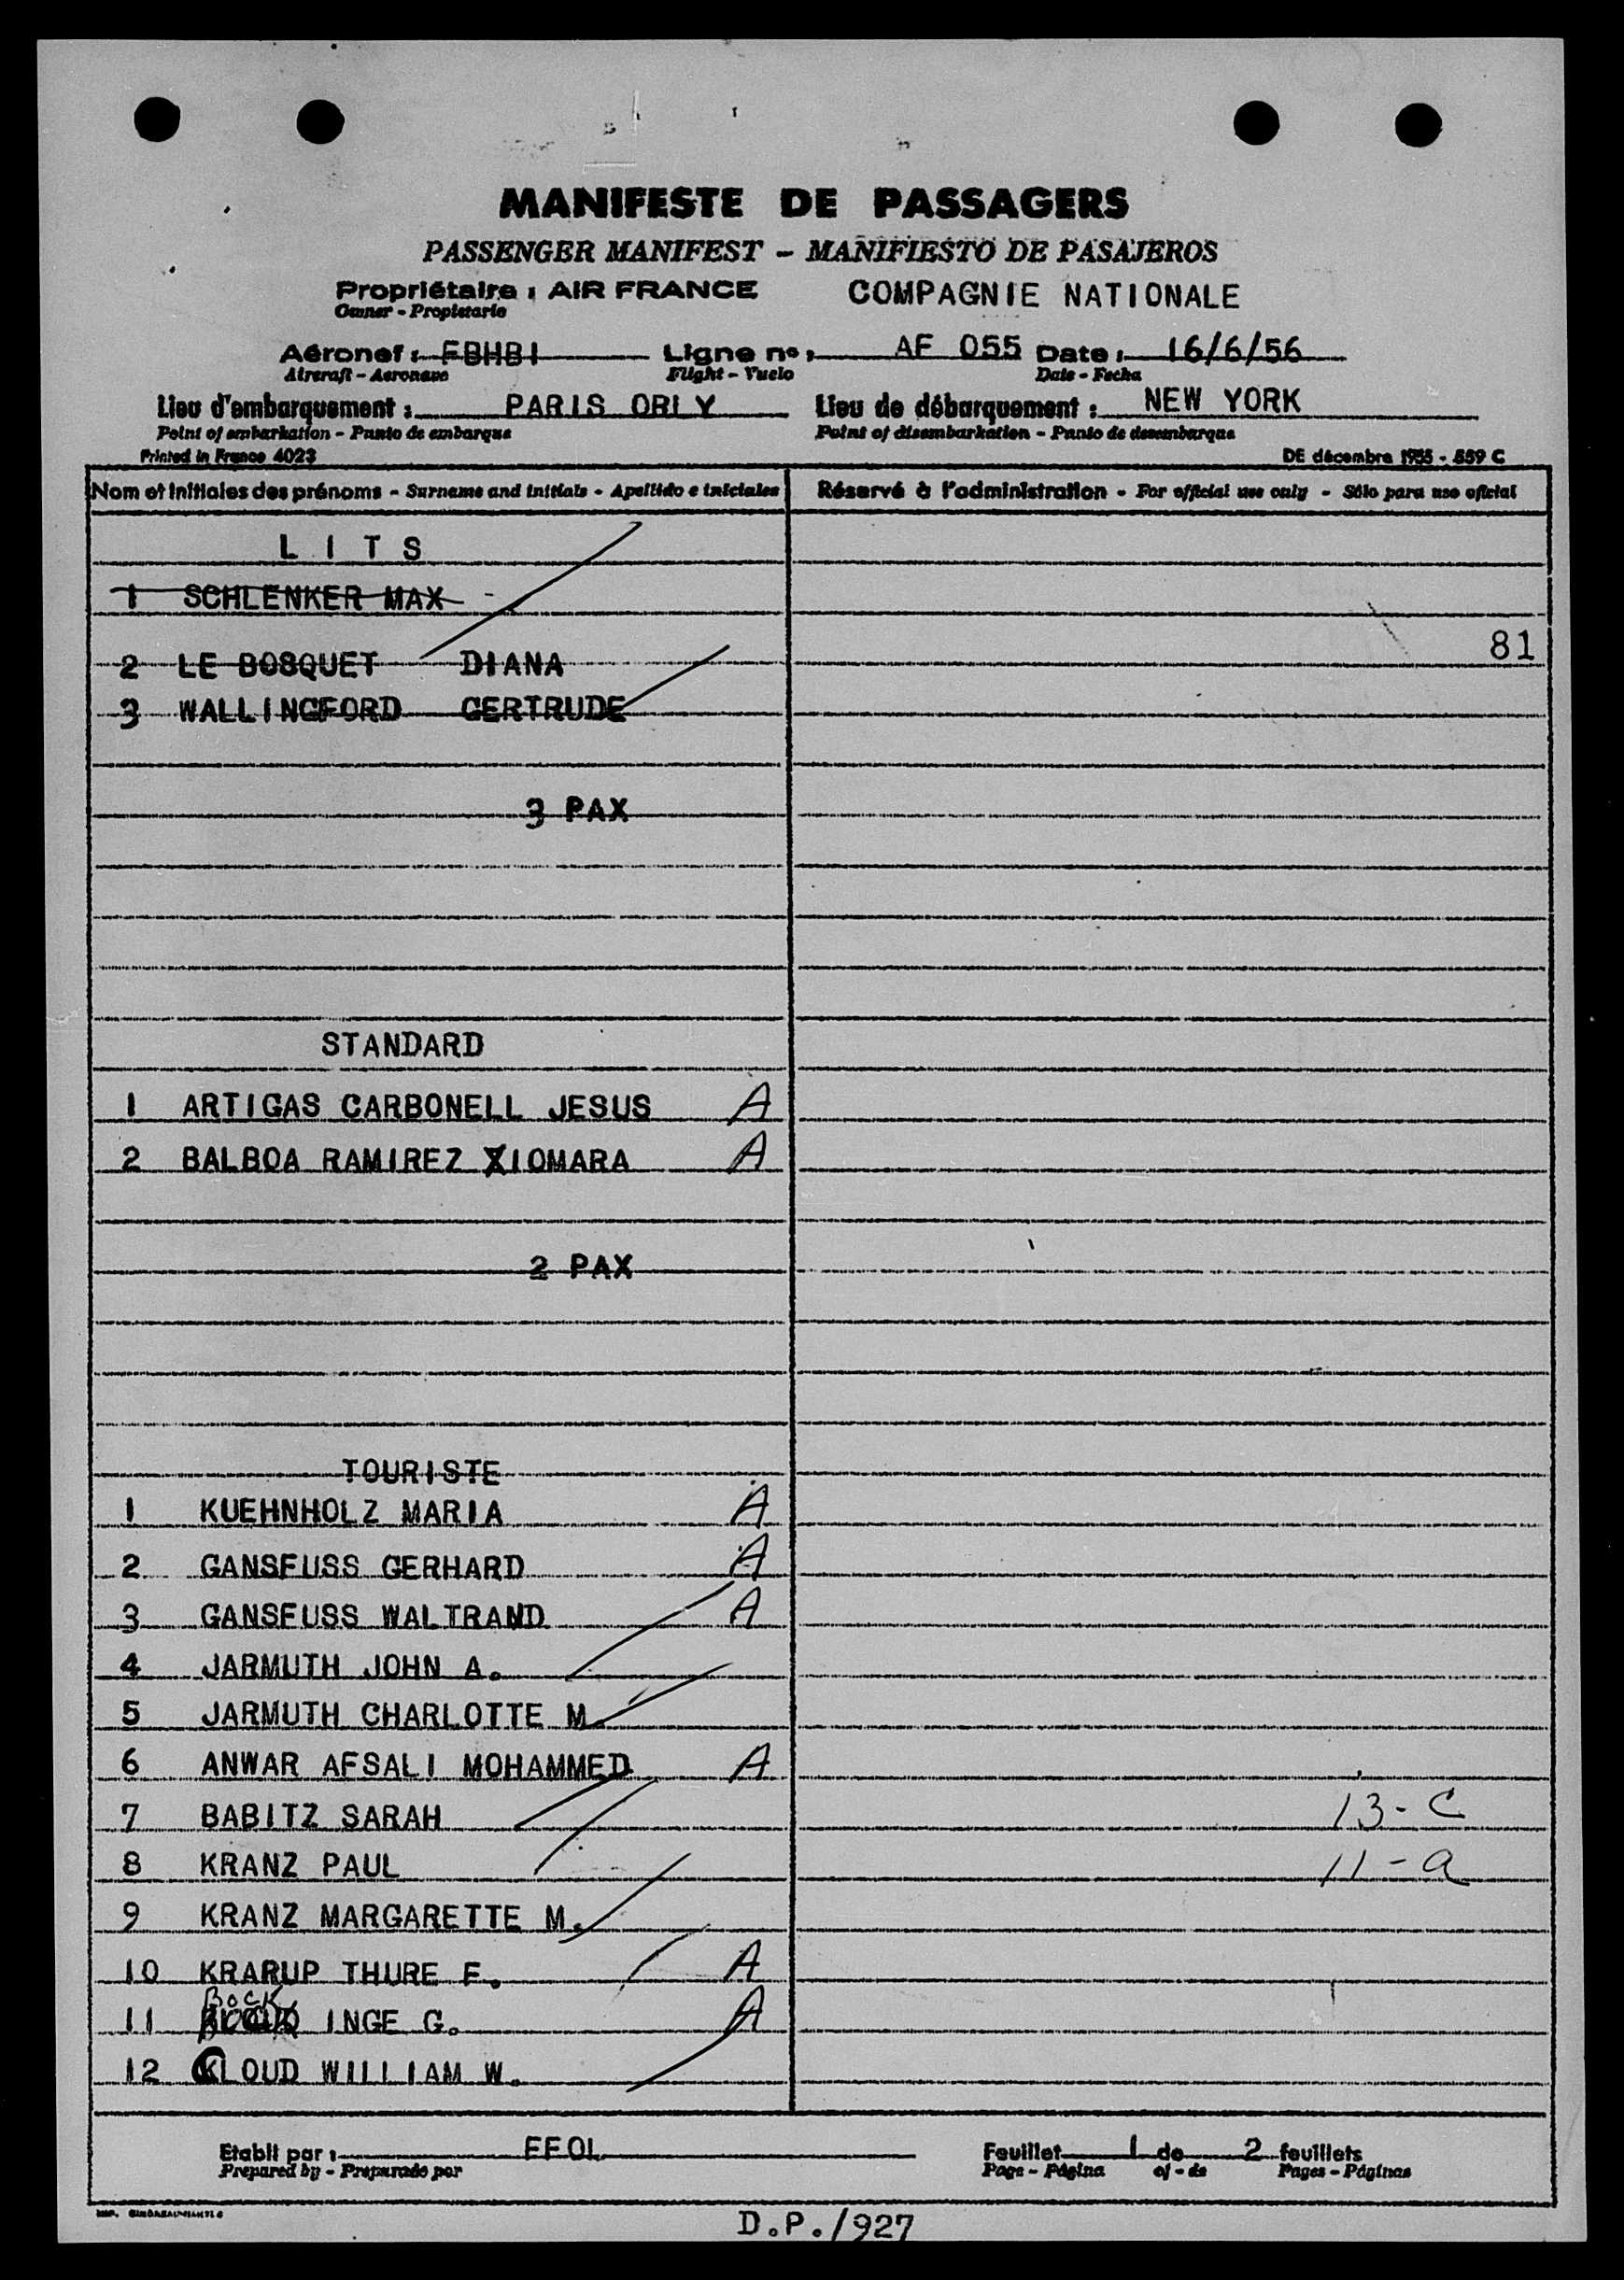 MANIFESTE DE PASSAGERS
PASSENGER MANIFEST - MAÑIFIESTO DE PASAJEROS
Propriétaire : AIR FRANCE COMPAGNIE NATIONALE
Owner - Propietario
Aéronef : FBHBI Ligne nº : AF 055 Date : 16/6/56
Aircraft - Aeronave Flight - Vuelo Date - Fecha
Lieu d'embarquement : PARIS ORLY Lieu de débarquement : NEW YORK
Point of embarkation - Punto de embarque Point of disembarkation - Punto de desembarque
Printed in France 4023 DE décembre 1955 - 559 C
Nom et Initiales des prénoms - Surname and initials - Apellido e iniciales Réservé à l'administration - For official use only - Sólo para uso oficial
LITS
1 SCHLENKER MAX -
81
2 LE BOSQUET DIANA
3 WALLINGFORD GERTRUDE
3 PAX
STANDARD
1 ARTIGAS CARBONELL JESUS A
2 BALBOA RAMIREZ XIOMARA A
2 PAX
TOURISTE
1 KUEHNHOLZ MARIA A
2 GANSFUSS GERHARD A
3 GANSFUSS WALTRAND A
4 JARMUTH JOHN A.
5 JARMUTH CHARLOTTE M.
6 ANWAR AFSALI MOHAMMED A
7 BABITZ SARAH 13-C
8 KRANZ PAUL 11-a
9 KRANZ MARGARETTE M.
10 KRARUP THURE F. A
11 BOCK INGE G. A
12 CLOUD WILLIAM W.
Etabli par : FFOL Feuillet 1 de 2 feuillets
Prepared by - Preparado por Page - Página of - de Pages - Páginas
D.P./927